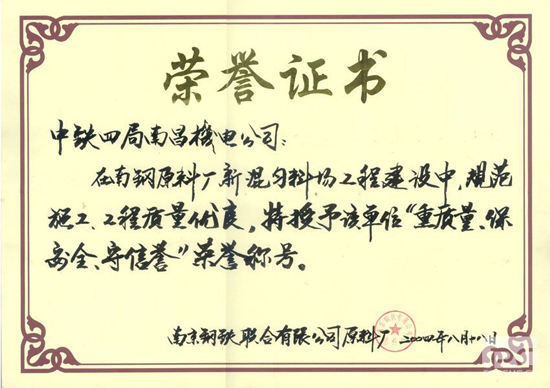 荣誉证书
中铁四局南昌機电公司:
在南钢原料厂新混匀料场工程建设中,規范
施工、工程质量优良,特授予该单位“重质量、保
安全、守信誉”荣誉称号。
南京钢铁联合有限公司原料厂 二00四年八月十八日